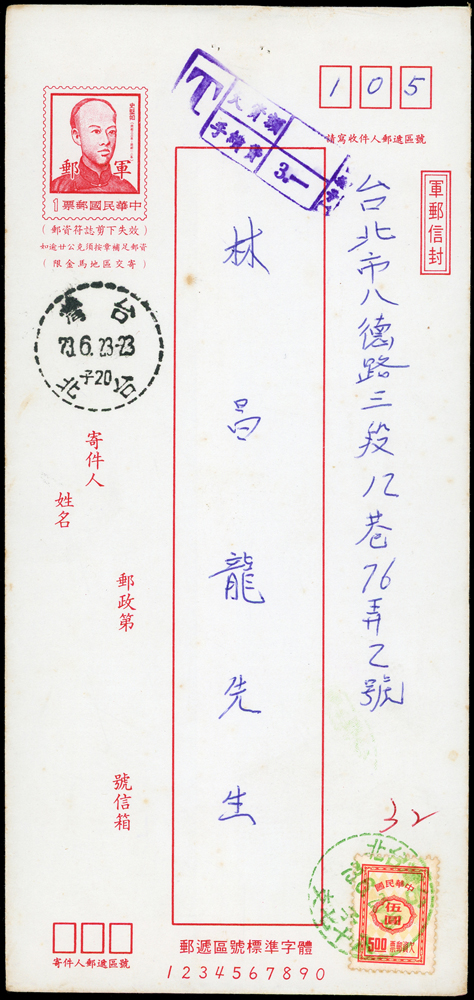 105
請寫收件人郵遞區號
軍郵信封
台北市八德路三段12巷76弄2號
林昌龍先生
軍郵
1 中華民國郵票
(郵資符誌剪下失效)
如逾廿公克須按章補足郵資
(限金馬地區交寄)
T 欠資額
手續費 3.—
台灣
73.6.23-23
子20
台北
寄件人
姓名
郵政第
號信箱
寄件人郵遞區號
郵遞區號標準字體
1234567890
32
中華民國
伍圓
500 欠資郵票